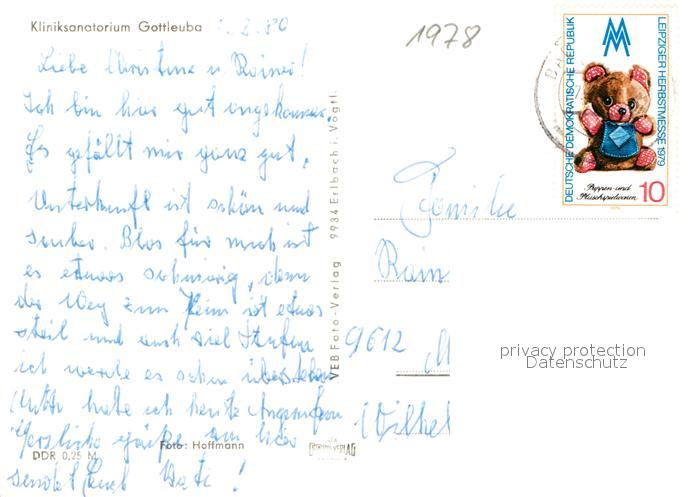 Kliniksanatorium Gottleuba 1.2.80
1978
Liebe Christina u. Rainer!
Ich bin hier gut angekommen.
Es gefällt mir ganz gut.
Unterkunft ist schön und
sauber. Blos für mich ist
es etwas schwierig, denn
der Weg zum Heim ist etwas
steil und auch viel Stufen
ich werde es schon überstehen
Mutti habe ich heute Angerufen
Herzliche Grüße von hier
sendet Euch Vati!
Foto: Hoffmann
DDR 0,25 M
VEB Foto-Verlag 9934 Erlbach i. Vogtl.
DEUTSCHE DEMOKRATISCHE REPUBLIK
LEIPZIGER HERBSTMESSE 1979
MM
Puppen- und
Plüschspielwaren
10
Familie
Rain
9612 M
Wilhel
privacy protection
Datenschutz